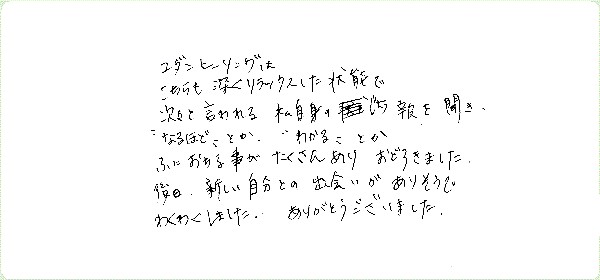 エダンヒーリングは
こちらも 深くリラックスした 状態で
次々と 言われる 私自身の 情報を 聞き、
"なるほど" とか、 "わかる" とか
ふにおちる事が たくさんあり おどろきました。
後日、新しい自分との 出会いが ありそうで
わくわくしました。 ありがとうございました。